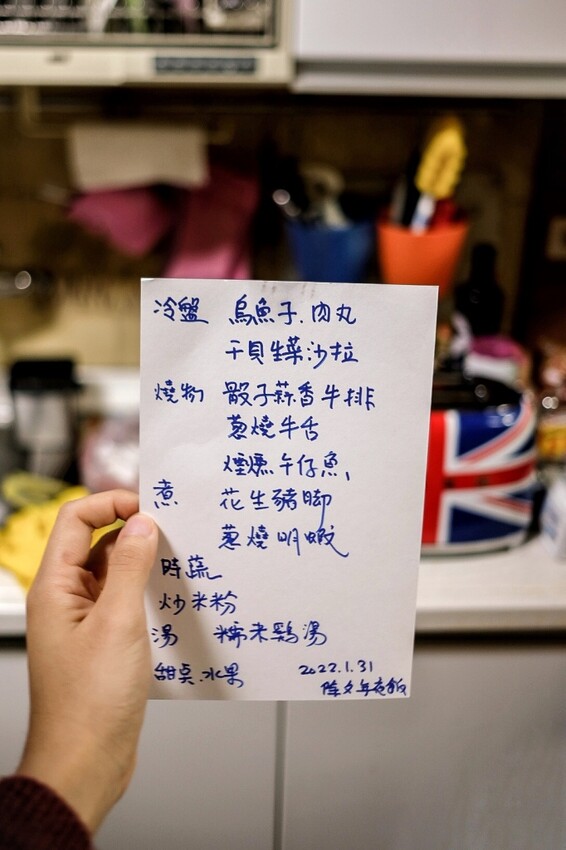 冷盤 烏魚子.肉丸
干貝生菜沙拉
燒物 骰子蒜香牛排
蔥燒牛舌
煙燻午仔魚
煮 花生豬腳
蔥燒明蝦
時蔬
炒米粉
湯 糯米鷄湯
甜點.水果 2022.1.31
除夕年夜飯